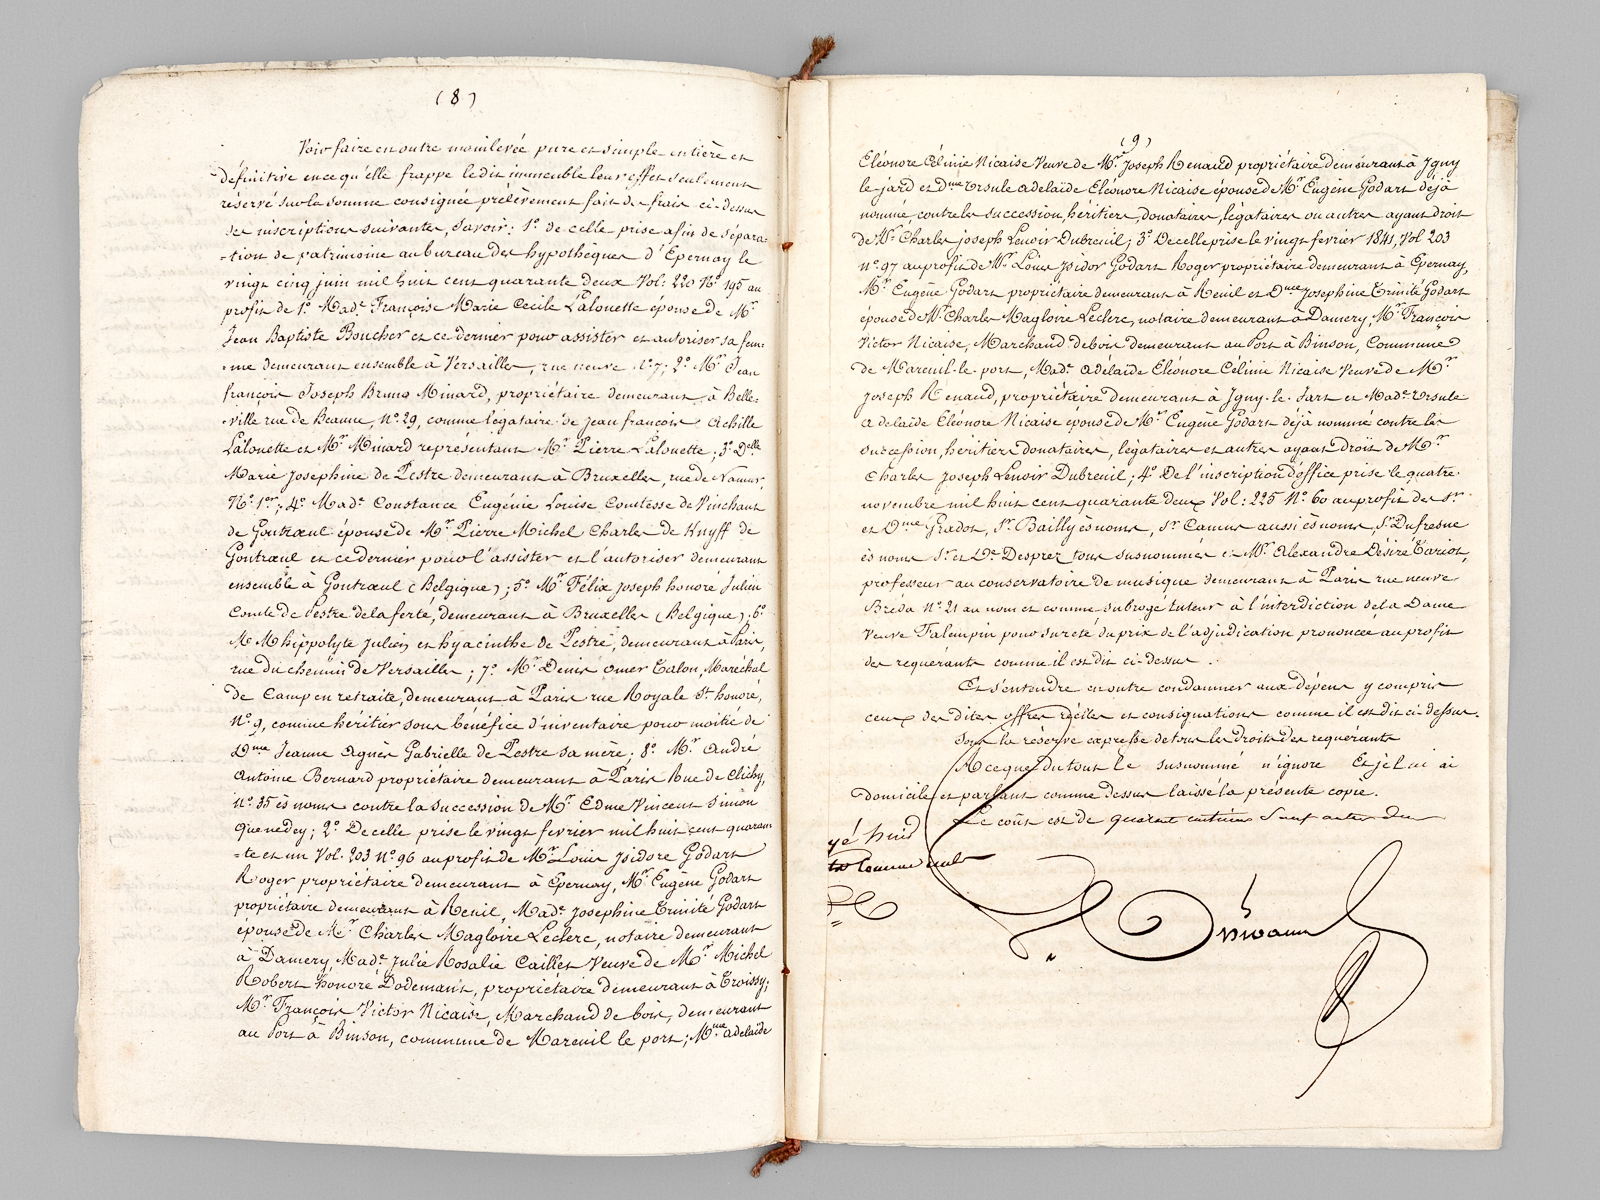 (8)
Voir faire en outre mainlevée pure et simple entière et
définitive en ce qu'elle frappe le dit immeuble leur effet seulement
réservé sur la somme consignée prélèvement fait des frais ci-dessus
des inscriptions suivantes, Savoir: 1º. de celle prise afin de sépara=
=tion de patrimoine au bureau des hypothèques d'Epernay le
vingt cinq juin mil huit cent quarante deux Vol: 220 Nº 195 au
profit de 1º. Made. Françoise Marie Cecile Lalouette épouse de Mr.
Jean Baptiste Boucher et ce dernier pour assister et autoriser sa fem=
=me demeurant ensemble à Versailles, rue neuve nº7; 2º. Mr. Jean
françois Joseph Bruno Minard, propriétaire demeurant à Belle=
=ville rue de Beaune, Nº. 29, comme légataire de jean francois Achille
Lalouette et Mr. Minard représentant Mr. Pierre Lalouette; 3º. Delle
Marie Josephine de Pestre demeurant à Bruxelles, rue de Namur,
Nº. 1er.; 4º. Made. Constance Eugénie Louise Comtesse de Vinchant
de Gontrœul épouse de Mr. Pierre Michel Charles de Knyff de
Gontrœul et ce dernier pour l'assister et l'autoriser demeurant
ensemble à Gontrœul (Belgique); 5º. Mr. Félix joseph honoré Julien
Comte de Pestre de la ferté, demeurant à Bruxelles (Belgique); 6º
MM hippolyte Julien et hyacinthe de Pestre, demeurant à Paris,
rue du chemin de Versailles; 7º. Mr. Denis omer Talon, Maréchal
de Camp en retraite, demeurant à Paris rue Royale St. honoré,
Nº. 9, comme héritier sous bénéfice d'inventaire pour moitié de
Dme Jeanne Agnès Gabrielle de Pestre sa mère; 8º. Mr. André
Antoine Bernard propriétaire demeurant à Paris Rue de Clichy,
Nº. 35 ès noms contre la succession de Mr. Edme Vincent Simon
Quenedey; 2º. De celle prise le vingt fevrier mil huit cent quaran
=te et un Vol. 203 Nº 96 au profit de Mr. Louis Isidore Godart
Roger propriétaire demeurant à Epernay, Mr. Eugène Godart
propriétaire demeurant à Reuil, Made. Josephine Trinité Godart
épouse de Mr. Charles Magloire Leclerc, notaire demeurant
à Damery, Made. Julie Rosalie Caillet Veuve de Mr. Michel
Robert honoré Dodemant, propriétaire demeurant à Troissy;
Mr. François Victor Nicaise, Marchand de bois, demeurant
au Port à Binson, commune de Mareuil le port; Mme. adelaïde
(9)
Eléonore Célinie Nicaise Veuve de Mr. Joseph Renaud propriétaire demeurant à Igny
le-jard et Dme Ursule adelaïde Eléonore Nicaise épouse de Mr. Eugène Godart déjà
nommé contre les succession, héritiers, donataires, légataires ou autres ayant droit
de Mr. Charles joseph Lenoir Dubreuil; 3º. De celle prise le vingt fevrier 1841, Vol 203
Nº. 97 au profit de Mr. Louis Isidor Godart Roger propriétaire demeurant à Epernay,
Mr. Eugène Godart propriétaire demeurant à Reuil et Dme Josephine Trinité Godart
épouse de Mr. Charles Magloire Leclerc, notaire demeurant à Damery, Mr. François
Victor Nicaise, Marchand de bois demeurant au Port à Binson, Commune
de Mareuil-le-port, Made. adélaïde Eléonore Célinie Nicaise Veuve de Mr.
joseph Renaud, propriétaire demeurant à Igny-le-Jart et Made. Ursule
adelaïde Eléonore Nicaise épouse de Mr. Eugène Godart déjà nommé contre les
succession, héritiers donataires, légataires et autres ayant droits de Mr.
Charles Joseph Lenoir Dubreuil; 4º. De l'inscription d'office prise le quatre
novembre mil huit cent quarante deux Vol: 225 Nº. 60 au profit des Sr.
et Dme Gradot, Sr. Bailly ès noms, Sr. Camus aussi ès noms, Sr. Dufresne
ès noms Sr. et De. Desprez tous susnommés et Mr. Alexandre Désiré Tariot,
professeur au conservatoire de musique demeurant à Paris rue neuve
Bréda Nº. 21 au nom et comme subrogé tuteur à l'interdiction de la Dame
Veuve Falempin pour sureté du prix de l'adjudication prononcée au profit
des requérants comme il est dit ci-dessus.
Et s'entendre en outre condamner aux dépens y compris
ceux des dites offres réelles et consignations comme il est dit ci-dessus.
Sous la réserve expresse de tous les droits des requerants
A ce que du tout le susnommé n'ignore Et je lui ai
domicile et parlant comme dessus laissé la présente copie.
Le coût est de
yé huit